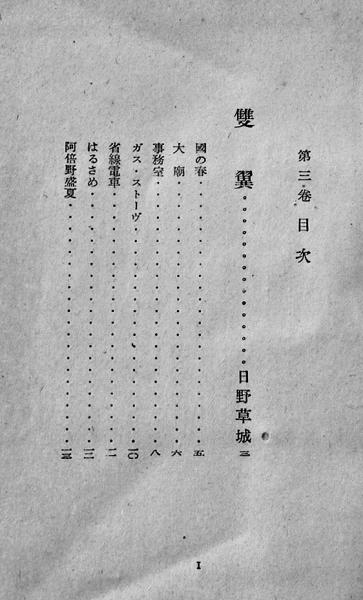 第三卷目次
雙翼・・・・・・・・・・・・・・日野草城 三
國の春・・・・・・・・・・・・・・・・・・・・五
大廟・・・・・・・・・・・・・・・・・・・・六
事務室・・・・・・・・・・・・・・・・・・・・八
ガス・ストーヴ・・・・・・・・・・・・・・・・・一〇
省線電車・・・・・・・・・・・・・・・・・・・一一
はるさめ・・・・・・・・・・・・・・・・・・・一二
阿倍野盛夏・・・・・・・・・・・・・・・・・・
I